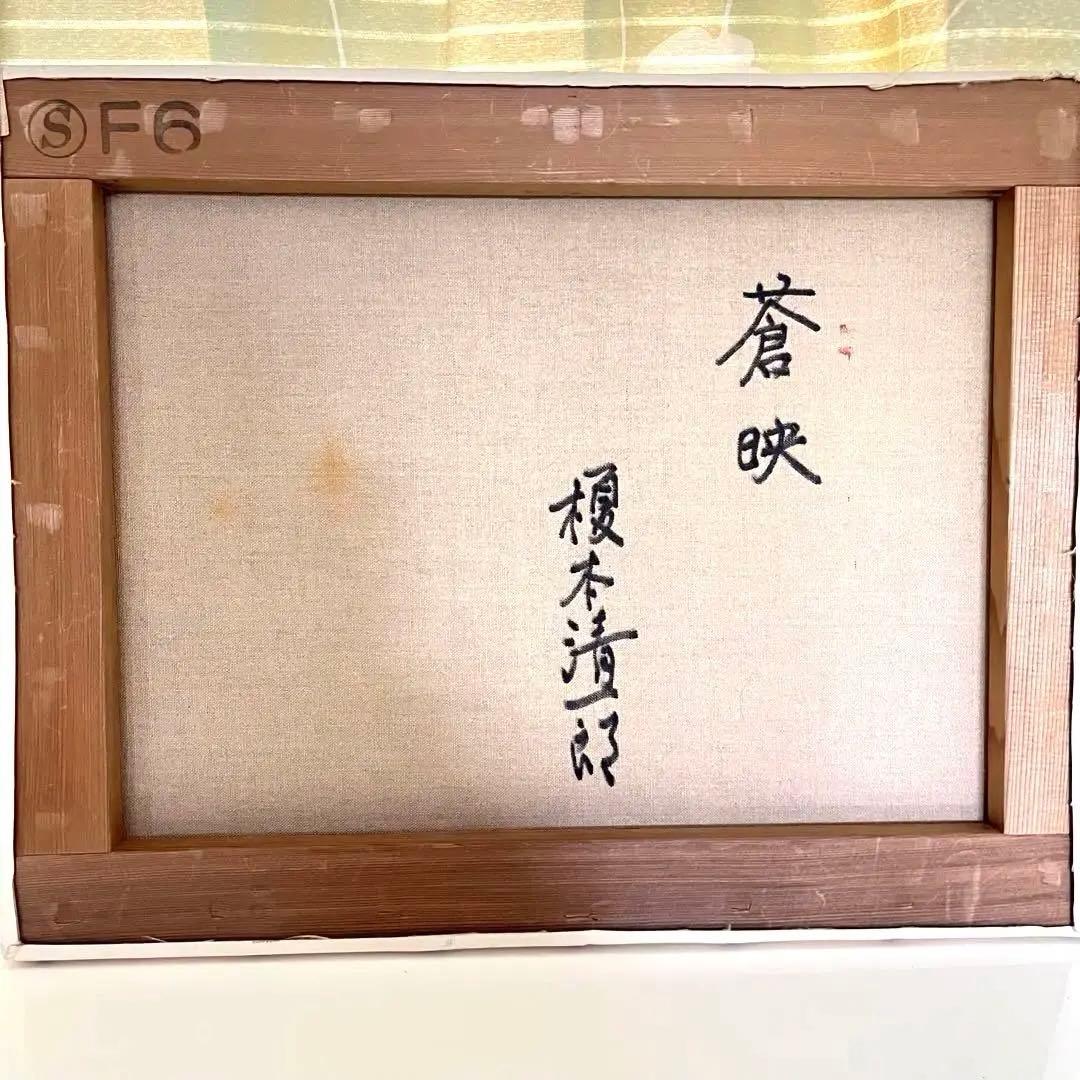 Ⓢ F6
蒼映
榎本清一郎